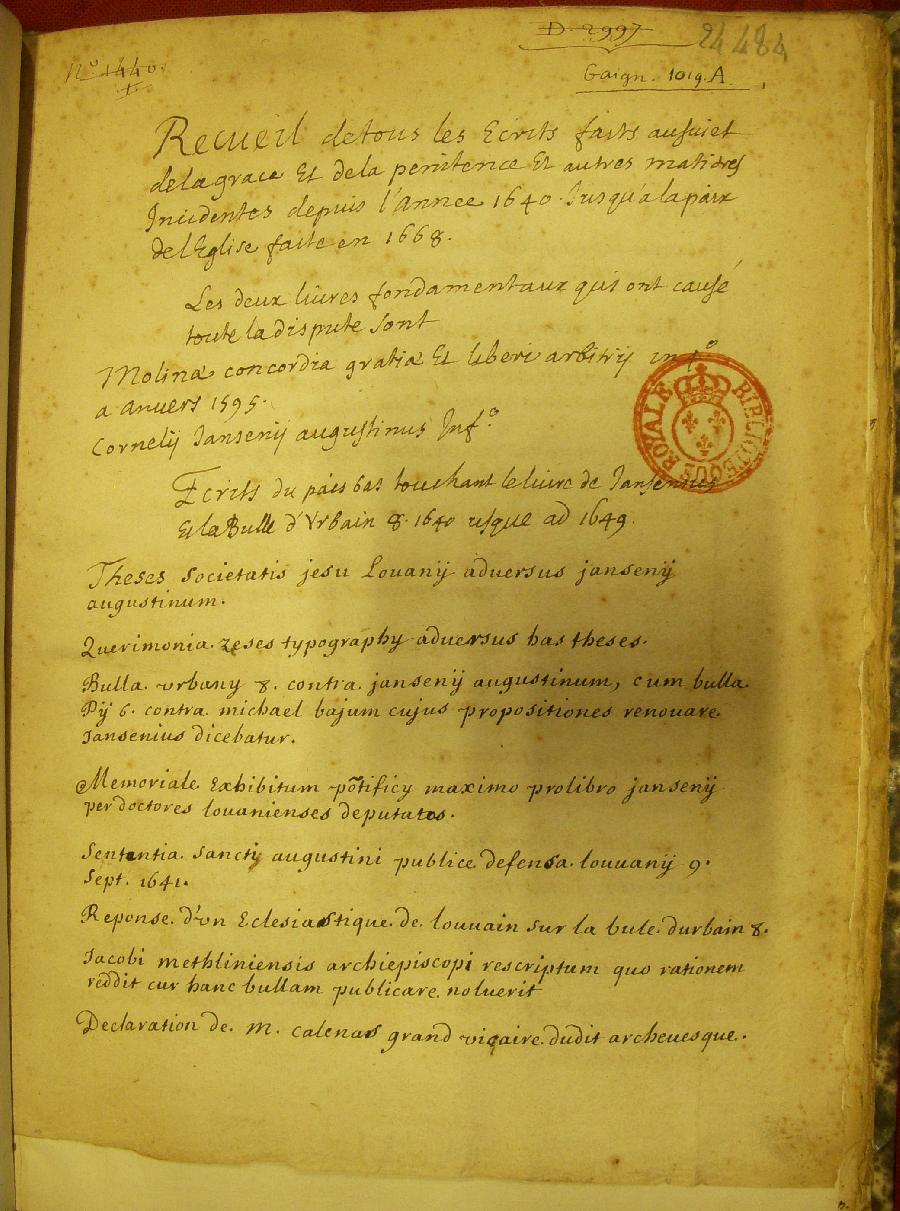 D. 2997
24484
No 1440.
Gaign. 1019. A.
Recueil detous les Ecrits faits ausuiet
delagrace Et dela penitence Et autres matieres
Incidentes depuis l'Annee 1640. Jusqu'a lapaix
del'Eglise faite en 1668.
Les deux liures fondamentaux qui ont causé
toute ladispute sont
Molinæ concordia gratiæ Et liberi arbitrij in 4º
a anuers 1595.
Cornelij Jansenij augustinus Inf.º
BIBLIOTHEQUE ROYALE
Ecrits du païs bas touchant leliure de Jansenius
Et la Bulle d'Vrbain 8. 1640 usque ad 1649.
Theses societatis jesu Louanij aduersus jansenij
augustinum.
Querimonia. zeses typography aduersus has theses.
Bulla. vrbany 8. contra. jansenij augustinum, cum bulla.
Pij 6. contra. michael bajum cujus propositiones renouare.
Jansenius dicebatur.
Memoriale. Exhibitum põtificy maximo prolibro jansenij
per doctores louanienses deputatos.
Sententia. sancty augustini publice. defensa. louuanij 9.
Sept. 1641.
Reponse. d'vn Eclesiastique. de. louuain sur la bule. durbain 8.
Jacobi methliniensis archiepiscopi rescriptum quo rationem
reddit cur hanc bullam publicare. noluerit
Declaration de. m. calenas grand vicaire. dudit archeuesque.